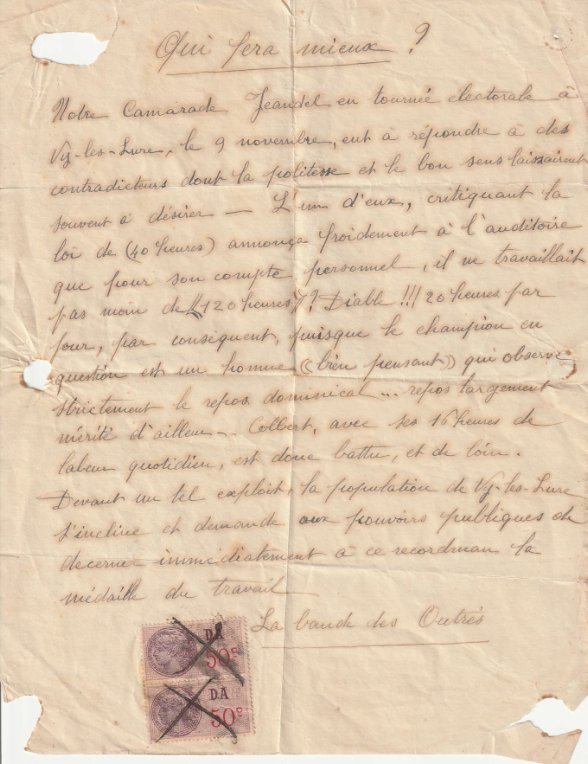 Qui fera mieux ?
Notre Camarade Jeandel en tournée électorale à
Vy-les-Lure, le 9 novembre, eut à répondre à des
contradicteurs dont la politesse et le bon sens laissaient
souvent à désirer — L'un d'eux, critiquant la
loi de (40 heures) annonça froidement à l'auditoire
que pour son compte personnel, il ne travaillait
pas moin de (120 heures)? Diable !!! 20 heures par
jour, par conséquent, puisque le champion en
question est un homme ((bien pensant)) qui observe
strictement le repos dominical... repos largement
mérité d'ailleur... Colbert, avec ses 16 heures de
labeur quotidien, est donc battu, et de loin.
Devant un tel exploit, la population de Vy-les-Lure
s'incline et demande aux pouvoirs publiques de
decerner immédiatement à ce recordman la
médaille du travail
La bande des Outrés
DA
50c
DA
50c